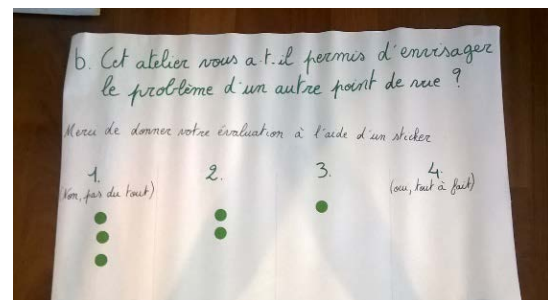 b. Cet atelier vous a.t.il permis d'envisager
le problème d'un autre point de vue ?
Merci de donner votre évaluation à l'aide d'un sticker
1. 2. 3. 4.
(Non, pas du tout) (oui, tout à fait)